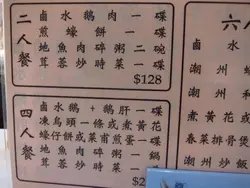 二人餐
鹵水鵝肉一碟
煎蠔餅一碟
地魚肉碎粥二碗
茸蓉炒時菜一碟
$128
四人餐
鹵水鵝+鵝肝一碟
凍烏頭一條或煮黃花
蠔仔餅或菜甫煎蛋一碟
地魚肉碎粥一鍋
茸蓉炒時菜一碟
$2
六八
鹵水
潮州
椒
煮黃花
春菜排骨煲
潮州炒